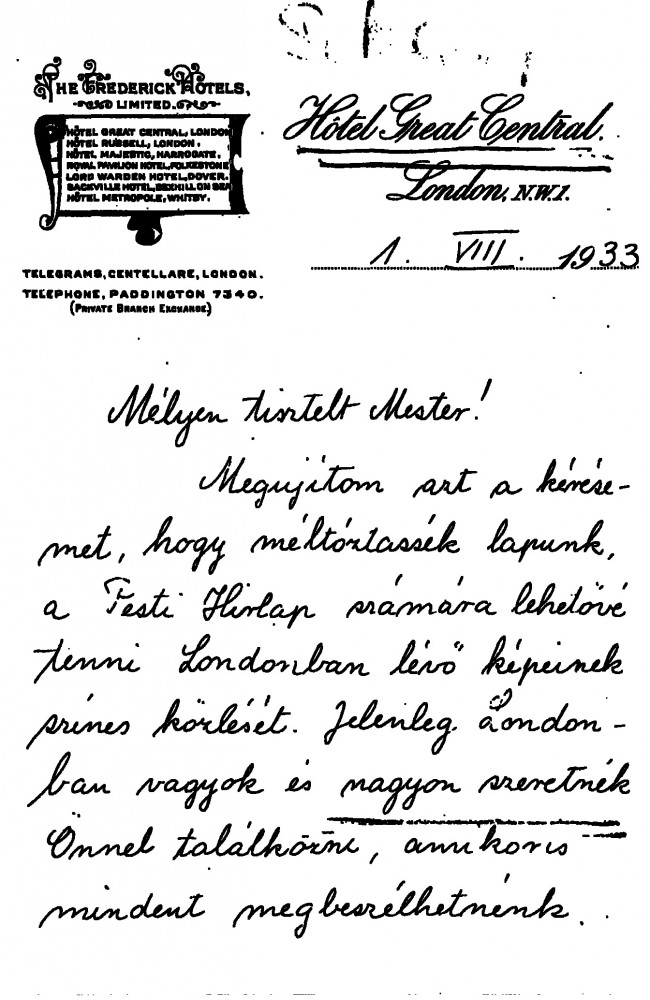 THE FREDERICK HOTELS,
LIMITED.
HÔTEL GREAT CENTRAL, LONDON
HÔTEL RUSSELL, LONDON.
HÔTEL MAJESTIC, HARROGATE.
ROYAL PAVILION HOTEL, FOLKESTONE
LORD WARDEN HOTEL, DOVER.
SACKVILLE HOTEL, BEXHILL ON SEA
HÔTEL METROPOLE, WHITBY.
TELEGRAMS, CENTELLARE, LONDON.
TELEPHONE, PADDINGTON 7340.
(PRIVATE BRANCH EXCHANGE)
Hôtel Great Central.
London, N.W.1.
1. VIII. 1933
Mélyen tisztelt Mester!
Megujítom azt a kérése-
met, hogy méltóztassék lapunk,
a Pesti Hirlap számára lehetővé
tenni Londonban lévő képeinek
színes közlését. Jelenleg London-
ban vagyok és nagyon szeretnék
Önnel találkozni, amikoris
mindent megbeszélhetnénk.